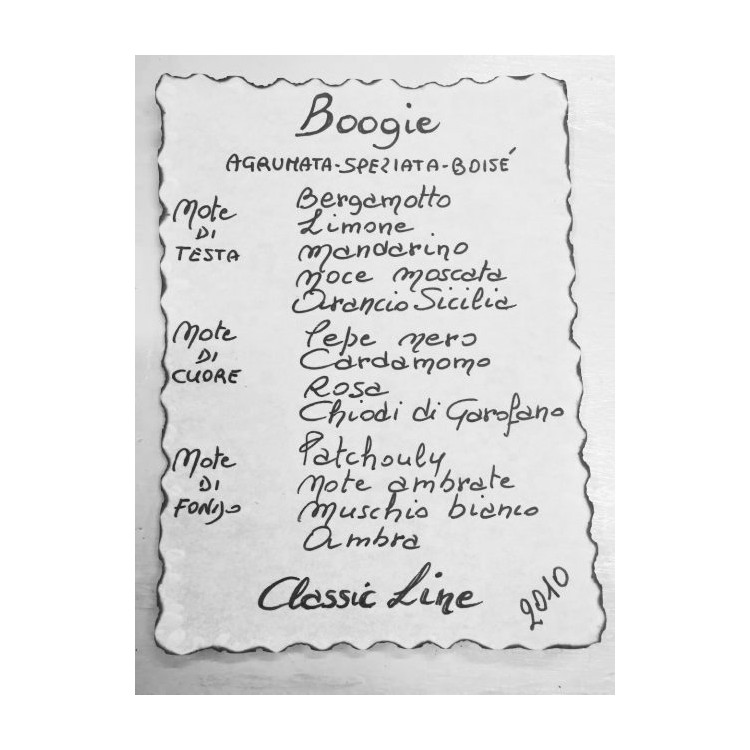 Boogie
AGRUMATA-SPEZIATA-BOISÉ
Note
DI
TESTA
Bergamotto
Limone
mandarino
noce moscata
Arancio Sicilia
Note
DI
CUORE
Pepe nero
Cardamomo
Rosa
Chiodi di Garofano
Note
DI
FONDO
Patchouly
Note ambrate
Muschio bianco
Ambra
Classic Line
2010